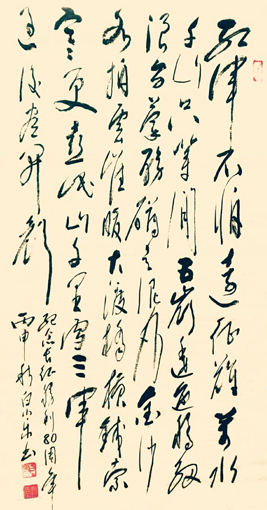 红军不怕远征难万水
千山只等闲五岭逶迤腾细
浪乌蒙磅礴走泥丸金沙
水拍云崖暖大渡桥横铁索
寒更喜岷山千里雪三军
过后尽开颜
纪念长征胜利80周年
丙申秋白
书